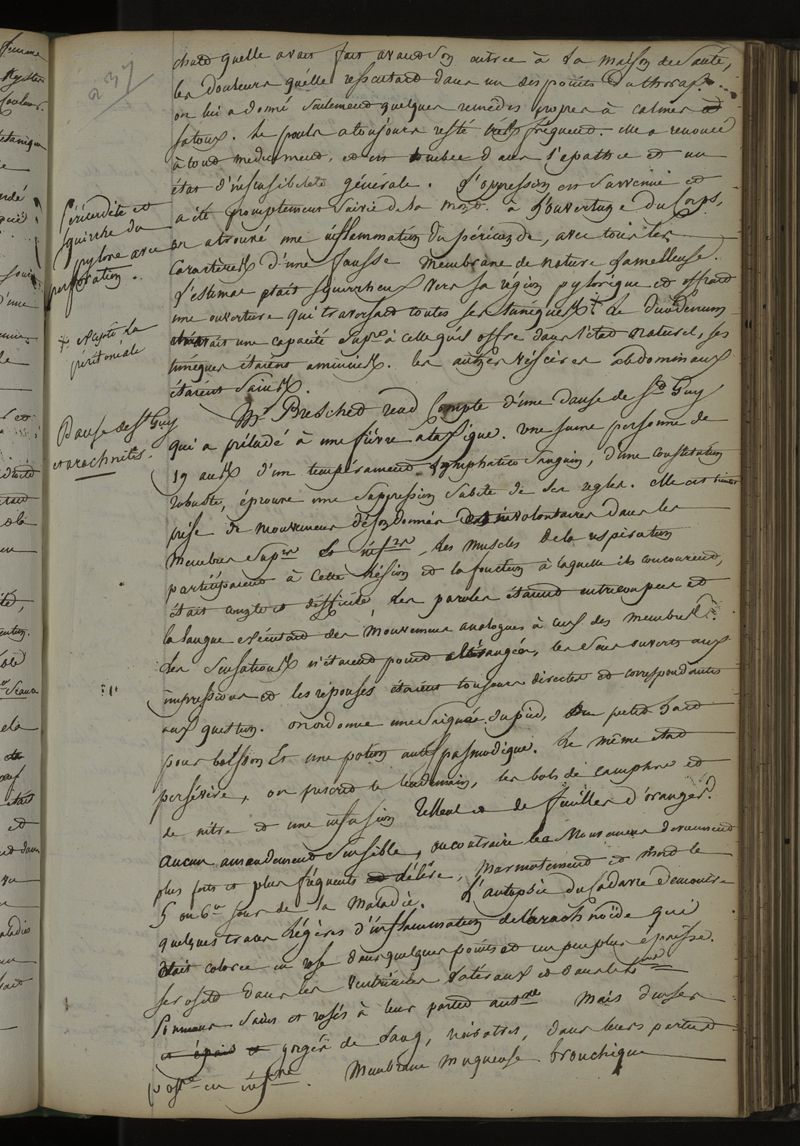 237
chute quelle avait fait avant son entrée à la maison de santé,
les douleurs quelle ressentait dans un des points du thorax.
on lui a donné seulement quelques remèdes propres à calmer
la toux. le pouls a toujours resté très fréquent. elle a renoncé
à tout medicament, et est tombée dans l'apathie et un
état d'insensibilité générale. L'oppression est survenue et
a été promptement suivie de la mort. à l'ouverture du Corps,
Péricardite et
squirrhe du
pylore avec
perforation.
on a trouvé une inflammation du péricarde, avec tous les
Caractères d'une fausse membrane de nature lamelleuse.
L'estomac était squirrheux vers sa région pylorique et offrait
une ouverture qui traversait toutes ses tuniques + Le Duodenum
+ excepté la
péritonéale
avait une capacité supre à celle qu'il offre dans l'état naturel, ses
tuniques étaient amincies. les autres viscères abdominaux
étaient sains.
Danse de St Guy
et arachnitis.
Mr Breschet rend Compte d'une danse de St Guy
qui a préludé à une fièvre ataxique. Une jeune personne de
19 ans, d'un tempérament lymphatico sanguin, d'une constitution
robuste, éprouve une suppression subite de ses règles. elle est
prise de mouvemens désordonnés et involontaires dans les
membres supres et infres, les muscles de la respiration
participaient à cette lésion et la fonction à laquelle ils concourent,
était anxieuse et difficile, les paroles étaient entrecoupées et
la langue exécutait des mouvemens analogues à ceux des membres.
Les sensations n'étaient point dérangées, les sens ouverts aux
impressions et les réponses étaient toujours directes et correspondantes
aux question. on ordonne une saignée du pied, du petit lait
pour boisson et une potion antispasmodique. Le même état
persévère, on prescrit le lendemain, les bols de camphre et
de nitre et une infusion de tilleul et de feuilles d'oranger.
aucun amendement sensible, au contraire les mouvemens deviennent
plus forts et plus fréquents délire, marmotement et mort le
5 ou 6e jour de la maladie. L'autopsie du cadavre démontre
quelques traces légères d'inflammation de l'arachnoïde qui
était colorée en rose dans quelques points et un peu plus épaisse.
sérosité dans les ventricules latéraux et dans les
Poumons sains et rosés à leur partie antre mais denses
et gorgés de sang, noirâtres, dans leurs parties
postre et infre. Membrane muqueuse bronchique